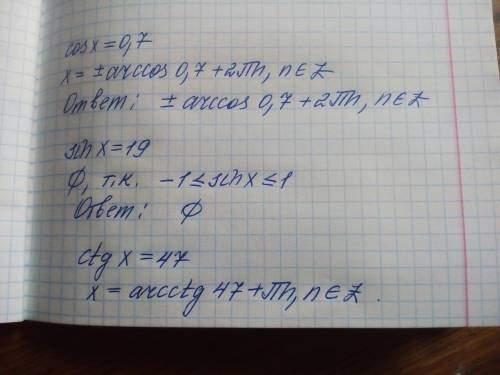 cosx=0,7
x=±arccos 0,7+2πn, n∈Z
Ответ: ± arccos 0,7+2πn, n∈Z
sin x=19
∅, т.к. -1≤sin x≤1
Ответ: ∅
ctg x=47
x= arcctg 47+πn, n∈Z.